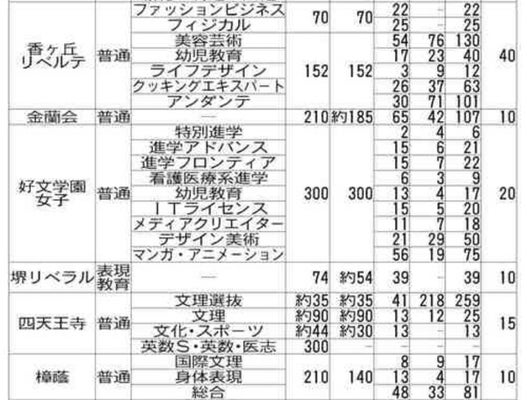 ファッションビジネス 70 70 22 - 22
フィジカル 25 - 25
香ヶ丘リベルテ 普通 美容芸術 152 152 54 76 130 40
幼児教育 17 23 40
ライフデザイン 3 9 12
クッキングエキスパート 26 37 63
アンダンテ 30 71 101
金蘭会 普通 — 210 約185 65 42 107 10
好文学園女子 普通 特別進学 300 300 2 4 6 20
進学アドバンス 15 6 21
進学フロンティア 15 7 22
看護医療系進学 6 3 9
幼児教育 13 4 17
ITライセンス 15 5 20
メディアクリエイター 11 7 18
デザイン美術 21 29 50
マンガ・アニメーション 56 19 75
堺リベラル 表現教育 — 74 約54 39 - 39 10
四天王寺 普通 文理選抜 約35 約35 41 218 259 15
文理 約90 約90 13 12 25
文化・スポーツ 約44 約30 13 - 13
英数S・英数・医志 300 - - - -
樟蔭 普通 国際文理 210 140 8 9 17 10
身体表現 13 4 17
総合 48 33 81